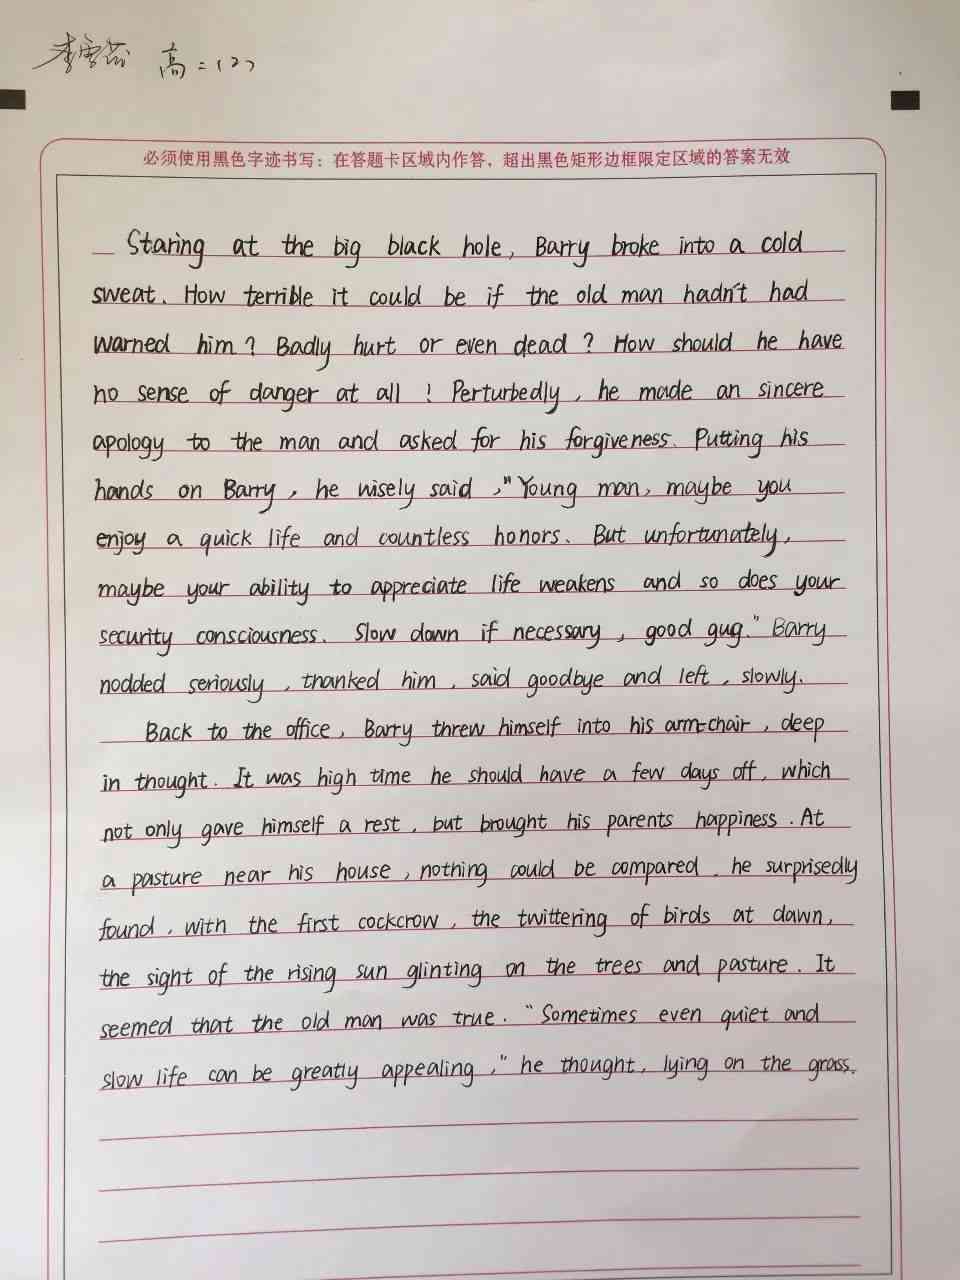 李雪蕊 高二(2)
必须使用黑色字迹书写：在答题卡区域内作答，超出黑色矩形边框限定区域的答案无效
Staring at the big black hole, Barry broke into a cold
sweat. How terrible it could be if the old man hadn't had
warned him? Badly hurt or even dead? How should he have
no sense of danger at all! Perturbedly, he made an sincere
apology to the man and asked for his forgiveness. Putting his
hands on Barry, he wisely said, "Young man, maybe you
enjoy a quick life and countless honors. But unfortunately,
maybe your ability to appreciate life weakens and so does your
security consciousness. Slow down if necessary, good gug." Barry
nodded seriously, thanked him, said goodbye and left, slowly.
Back to the office, Barry threw himself into his arm-chair, deep
in thought. It was high time he should have a few days off, which
not only gave himself a rest, but brought his parents happiness. At
a pasture near his house, nothing could be compared, he surprisedly
found, with the first cockcrow, the twittering of birds at dawn,
the sight of the rising sun glinting on the trees and pasture. It
seemed that the old man was true. "Sometimes even quiet and
slow life can be greatly appealing," he thought, lying on the grass.